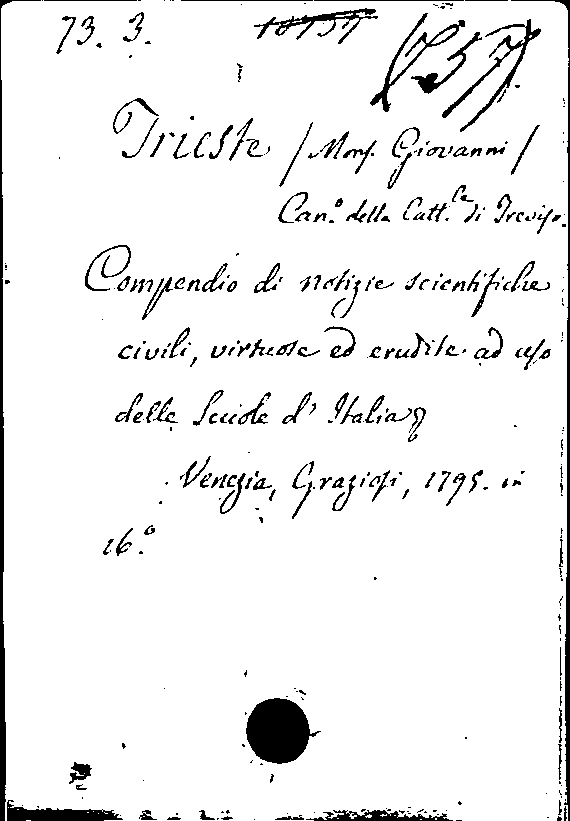 73. 3.
Trieste / Mons. Giovanni /
Can.º della Catt.le di Treviso.
Compendio di notizie scientifiche
civili, virtuose ed erudite ad uso
delle Scuole d' Italia
Venezia, Graziosi, 1795. in
16.º